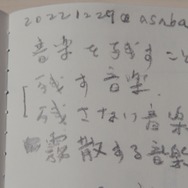 20221229@asaba
音楽を残すこと
残す音楽
残さない音楽
霧散する音楽